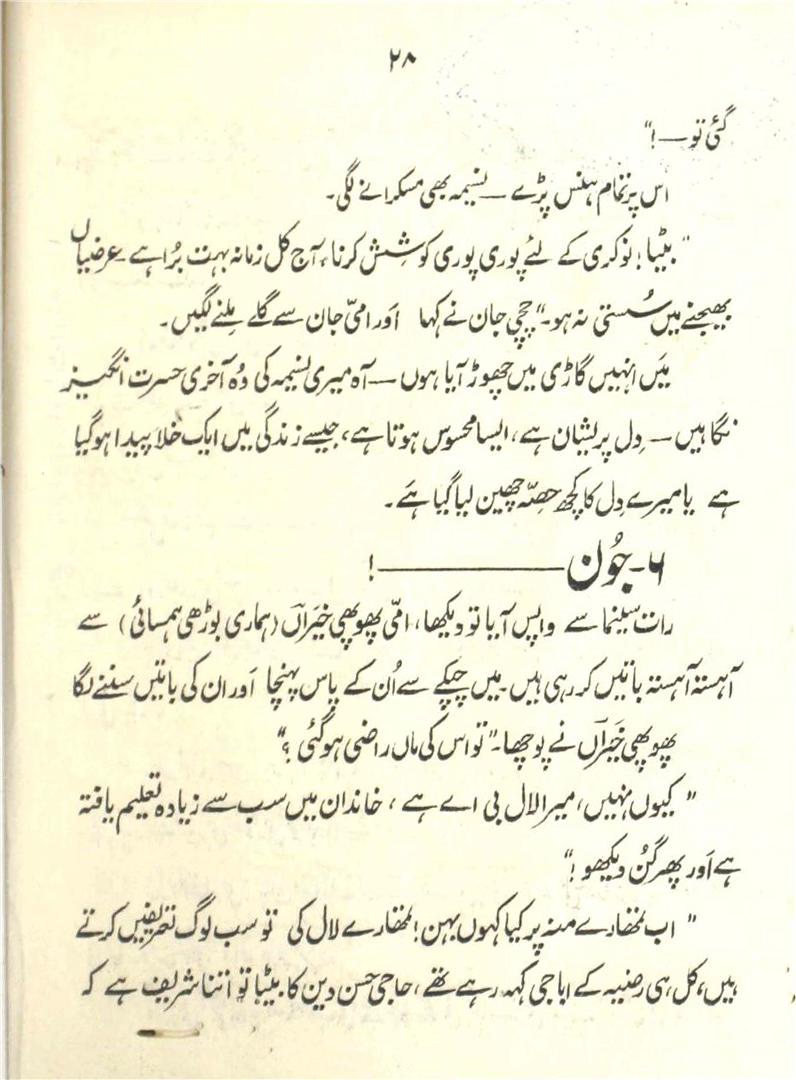 ۲۸
گئی تو — !"
اس پر تمام ہنس پڑے — نسیمہ بھی مسکرانے لگی۔
"بیٹا! نوکری کے لئے پوری پوری کوشِش کرنا، آج کل زمانہ بہت بُرا ہے عرضیاں
بھیجنے میں سُستی نہ ہو۔" چچی جان نے کہا اَور امیّ جان سے گلے مِلنے لگیں۔
میَں اُنہیں گاڑی میں چھوڑ آیا ہوں — آہ میری نسیمہ کی وُہ آخری حسرت انگیز
نگاہیں — دِل پریشان ہے، ایسا محسوس ہوتا ہے، جیسے زندگی میں ایک خلا پیدا ہو گیا
ہے یا میرے دِل کا کچھ حصّہ چھین لیا گیا ہَے۔
۶۔ جُون ——— !
رات سینما سے واپس آیا تو دیکھا، امّی پھوپھی خیَراںؔ (ہماری بوڑھی ہمسائی) سے
آہستہ آہستہ باتیں کر رہی ہیں۔ میں چپکے سے اُن کے پاس پہنچا اَور ان کی باتیں سننے لگا
پھوپھی خیَراںؔ نے پوچھا۔ "تو اس کی ماں راضی ہو گئی ؟"
"کیوں نہیں، میرا لال بی اے ہے، خاندان میں سب سے زیادہ تعلیم یافتہ
ہے اَور پھر گُن دیکھو !"
"اب تمھارے منہ پر کیا کہوں بہن! تمھارے لال کی تو سب لوگ تعریفیں کرتے
ہیں، کل ہی رضیہ کے ابا جی کہہ رہے تھے، حاجی حسن دین کا بیٹا تو اتنا شریف ہے کہ